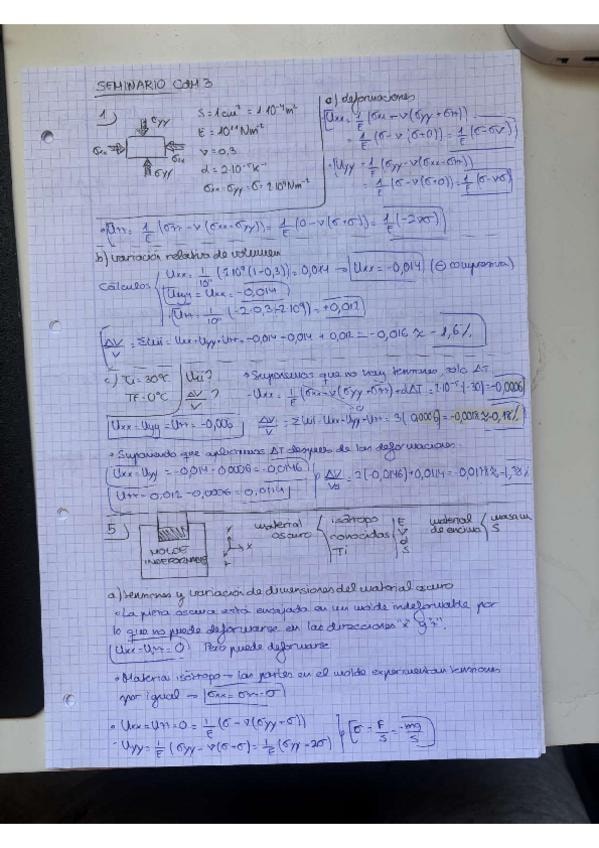 SEMINARIO CdM 3
1)
σyy
σxx
σxx
σyy
S = 1cm² = 1·10⁻⁴m²
E = 10¹¹Nm⁻²
ν = 0,3
α = 2·10⁻⁵K⁻¹
σxx = σyy = σ = 2·10⁹Nm⁻²
a) deformaciones
Uxx = 1/E (σxx - ν(σyy + σzz))
= 1/E (σ - ν(σ+0)) = 1/E (σ-σν)
Uyy = 1/E (σyy - ν(σxx-σzz))
= 1/E (σ - ν(σ+0)) = 1/E (σ-νσ)
Uzz = 1/E (σzz - ν(σxx-σyy)) = 1/E (0 - ν(σ+σ)) = 1/E (-2νσ)
b) variación relativa de volumen
Cálculos
Uxx = 1/10¹¹ (2·10⁹(1-0,3)) = 0,014 → Uxx = -0,014 (⊖ compresiva)
Uyy = Uxx = -0,014
Uzz = 1/10¹¹ (-2·0,3·(-2·10⁹)) = +0,012
ΔV/V = ΣUii = Uxx+Uyy+Uzz = -0,014 - 0,014 + 0,012 = -0,016 ≈ -1,6%
c) Ti = 30ºC
TF = 0ºC
Uii?
ΔV/V ?
• Suponemos que no hay tensiones, solo ΔT
- Uxx = 1/E (σxx - ν(σyy+σzz)) + αΔT = 2·10⁻⁵(-30) = -0,0006
Uxx = Uyy = Uzz = -0,006
ΔV/V = ΣUii = Uxx+Uyy+Uzz = 3(-0,0006) = -0,0018 ≈ -0,18%
• Suponiendo que aplicamos ΔT después de las deformaciones:
Uxx = Uyy = -0,014 - 0,0006 = -0,0146
Uzz = 0,012 - 0,0006 = 0,0114
ΔV/V₀ = 2(-0,0146) + 0,0114 = -0,0178 ≈ -1,78%
5)
MOLDE
INDEFORMABLE
Y
X
material
oscuro
isótropo
conocidas
Ti
E
ν
α
S
material
de encima
masa m
S
a) tensiones y variación de dimensiones del material oscuro
• La pieza oscura está encajada en un molde indeformable por
lo que no puede deformarse en las direcciones "x" y "z".
Uxx = Uzz = 0 Pero puede deformarse
• Material isótropo → las partes en el molde experimentan tensiones
por igual → σxx = σzz = σ
• Uxx = Uzz = 0 = 1/E (σ - ν(σyy + σ))
- Uyy = 1/E (σyy - ν(σ+σ)) = 1/E (σyy - 2σ)
σ = F/S = -mg/S